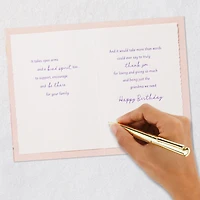 It takes
and a kind spirit, too,
to support, encourage
and be there
for your family.
And it would take more than words
could ever say to truly
thank you
for loving and giving so much
and being just the
we need.
Happy Birthday